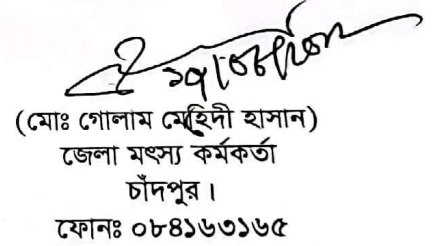 (মোঃ গোলাম মেহিদী হাসান)
জেলা মৎস্য কর্মকর্তা
চাঁদপুর।
ফোনঃ ০৮৪১৬৩১৬৫